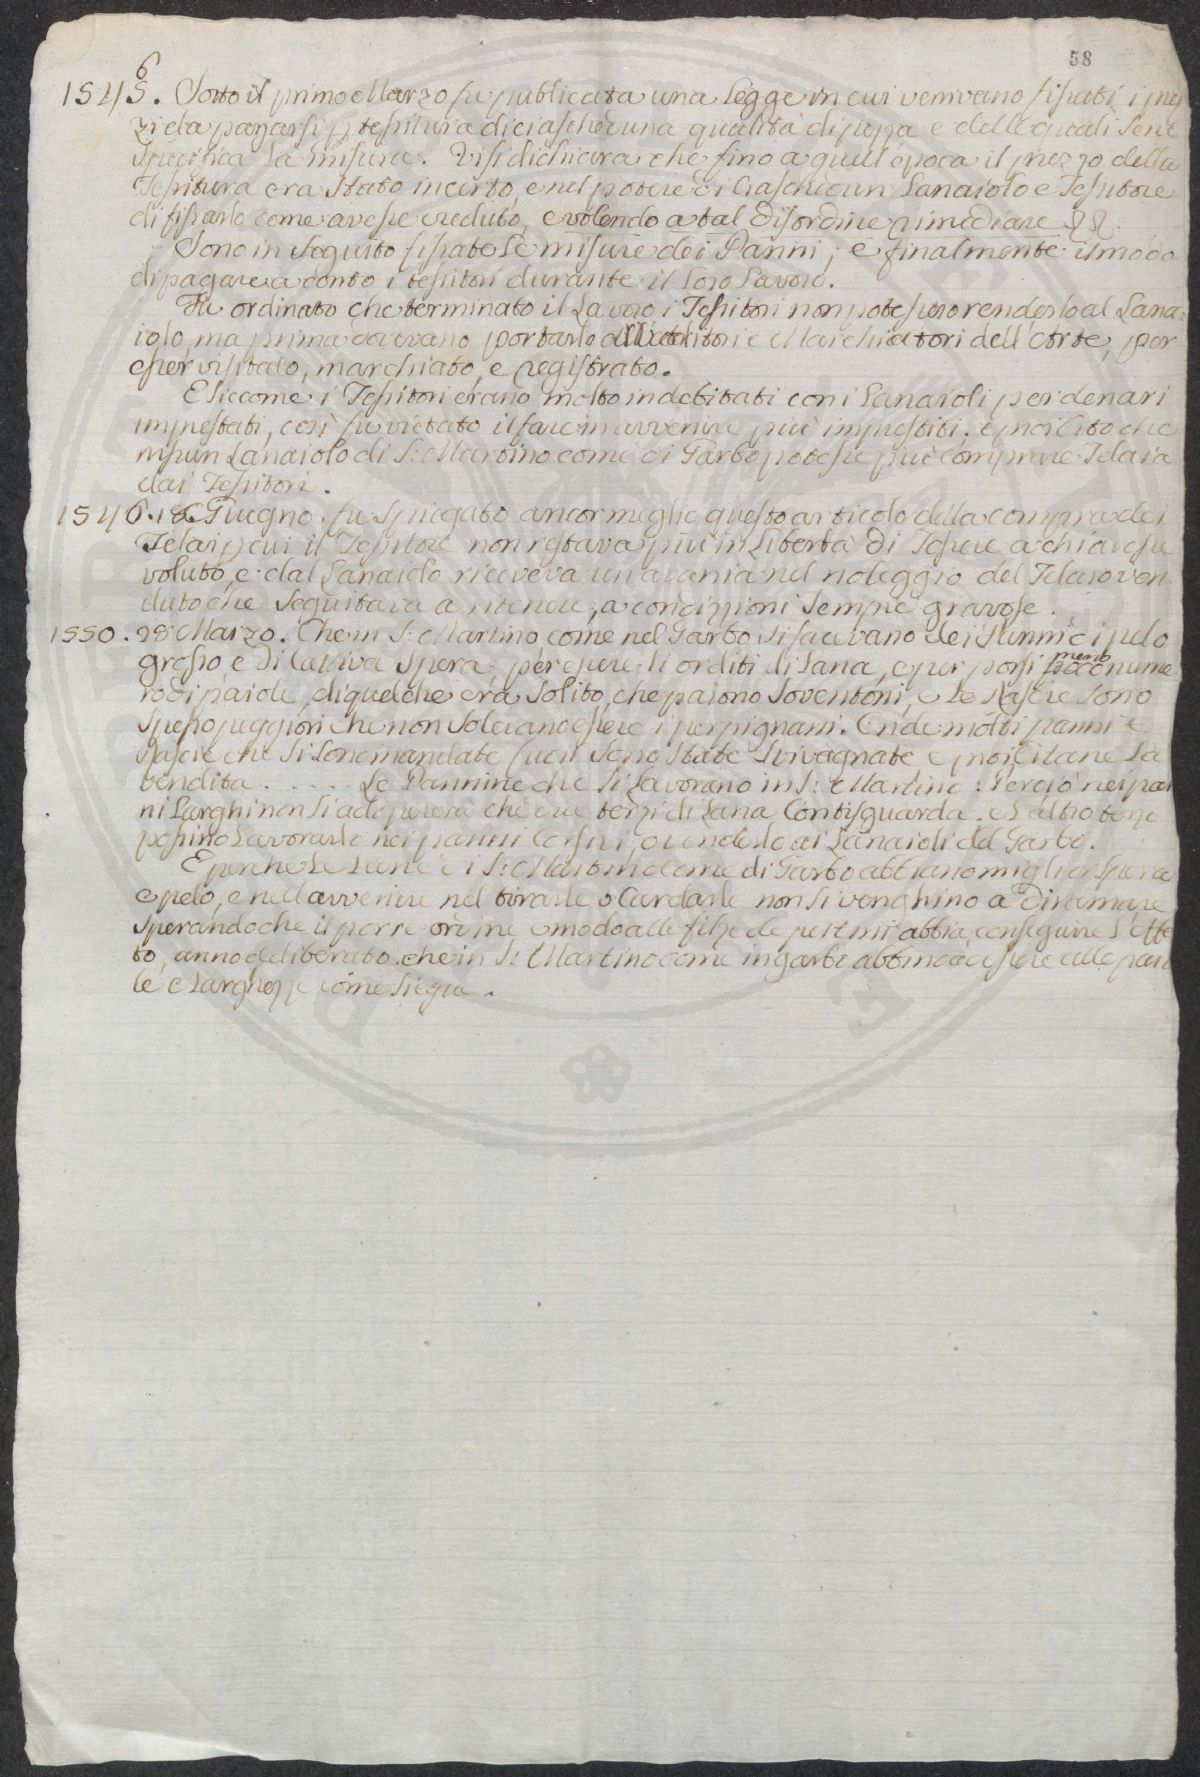 58
6
1545. Sotto il primo Marzo fu publicata una Legge in cui venivano fissati i prez
zi da pagarsi p tessitura di ciascheduna qualità di pezza e delle quali se ne
specifica la misura. Vi si dichiara che fino a quell'epoca il prezzo della
Tessitura era stato incerto, e nel potere di ciaschedun Lanaiolo e Tessitore
di fissarlo come avesse creduto, e volendo a tal disordine rimediare
Sono in seguito fissate le misure dei Panni; e finalmente il modo
di pagare a conto i tessitori durante il loro Lavoro.
Fu ordinato che terminato il Lavoro i Tessitori non potessero renderlo al Lana
iolo, ma prima dovevano portarlo e Marchiatori dell'Arte, per
esser visitato, marchiato, e registrato.
E siccome i Tessitori erano molto indebitati con i Lanaioli per denari
imprestati, così fu vietato il fare in avvenire più imprestiti. e proibito che
nissun Lanaiolo di S: Martino come di Garbo potesse più comprare Telaia
dai Tessitori.
1546. 18 Giugno. fu spiegato ancor meglio questo articolo della compra dei
Telai p cui il Tessitore non restava più in libertà di Tessere a chi avesse
voluto, e dal Lanaiolo riceveva un'avania nel noleggio del Telaio ven
duto che seguitava a ritenere, a condizzioni sempre gravose.
1550. 28 Marzo. Che in S: Martino come nel Garbo si facevano dei Panni di pelo
grosso e di cattiva spera, per essere li orditi di Lana, e per porsi meno nume
ro di paiole, di quel che era solito, che paiono Soventoni, e le Rascie sono
spesso peggiori che non solevano essere i perpignani. Onde molti panni e
Rascie che si sono mandate fuori sono state e la
vendita. . . . . . Le Pannine che si lavorano in S: Martino: Perciò nei pan
ni Larghi non si adopererà che due terzi di Lana e l'altro terzo
possino lavorarlo nei panni o venderlo ai Lanaioli del Garbo.
E perche le Lane di S: Martino come di Garbo abbiano miglior spera
e pelo, e nell'avvenire nel tirarle o Cardarle non si venghino a diramare
sperando che il porre ordine e modo alle fila de pettini abbia conseguire l'effe
to, anno deliberato. che in S: Martino come in garbo abbino a essere alle paio
le e larghezze come siegue.